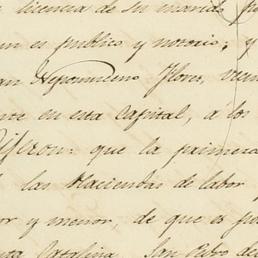 licencia de su marido
es publico y notorio; y
Nepomuceno Flores, vecin
en esta Capital, á los
Dijeron: que la primera
las Haciendas de labor y
or y menor, de que es
Catalina, San Pedro de